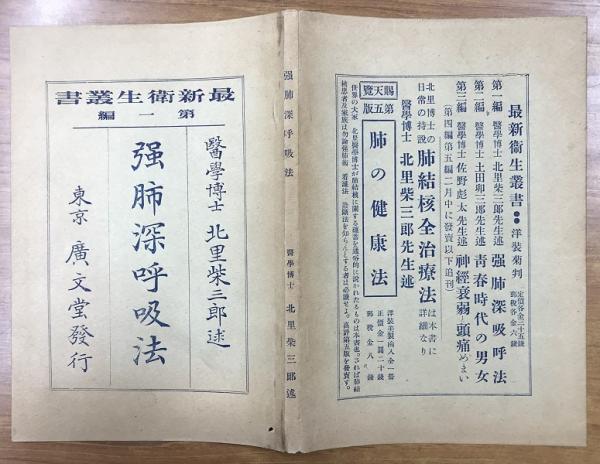 最新衛生叢書
第一編
醫學博士 北里柴三郎述
强肺深呼吸法
東京 廣文堂發行
强肺深呼吸法
醫學博士 北里柴三郎述
最新衛生叢書 洋装菊判 定價各金三十五錢 郵税各金六錢
第一編 醫學博士北里柴三郎先生述 强肺深呼吸法
第二編 醫學博士土田卯三郎先生述 青春時代の男女
第三編 醫學博士佐野彪太先生述 神經衰弱と頭痛めまい
(第四編第五編二月中に發賣以下追刊)
北里博士の日常の持說 肺結核全治療法は本書に詳細なり
醫學博士 北里柴三郎先生述
賜天覽
第五版
肺の健康法
洋装美製函入全一冊
正價金一圓二十錢
郵税金八錢
世界の大家 北里醫學博士が肺結核に關する蘊蓄を通俗的に說かれたるものは本書也。されば肺結
核患者及家族は勿論强肺術 看護法 診斷法を知らんとする者は必讀せよ。高評第五版を發賣す。